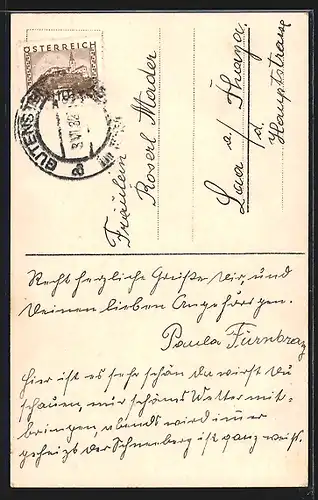 ÖSTERREICH
GUTENSTEIN
Fräulein
Roserl Mader
Laa a./Thaya.
Hauptstrasse
Recht herzliche Grüße Dir, und
Deinen lieben Angehörigen.
Paula Fürnbraz
Hier ist es sehr schön da wirst Du
schauen, nur schönes Wetter mit-
bringen, abends wird immer
geheizt der Schneeberg ist ganz weiß.